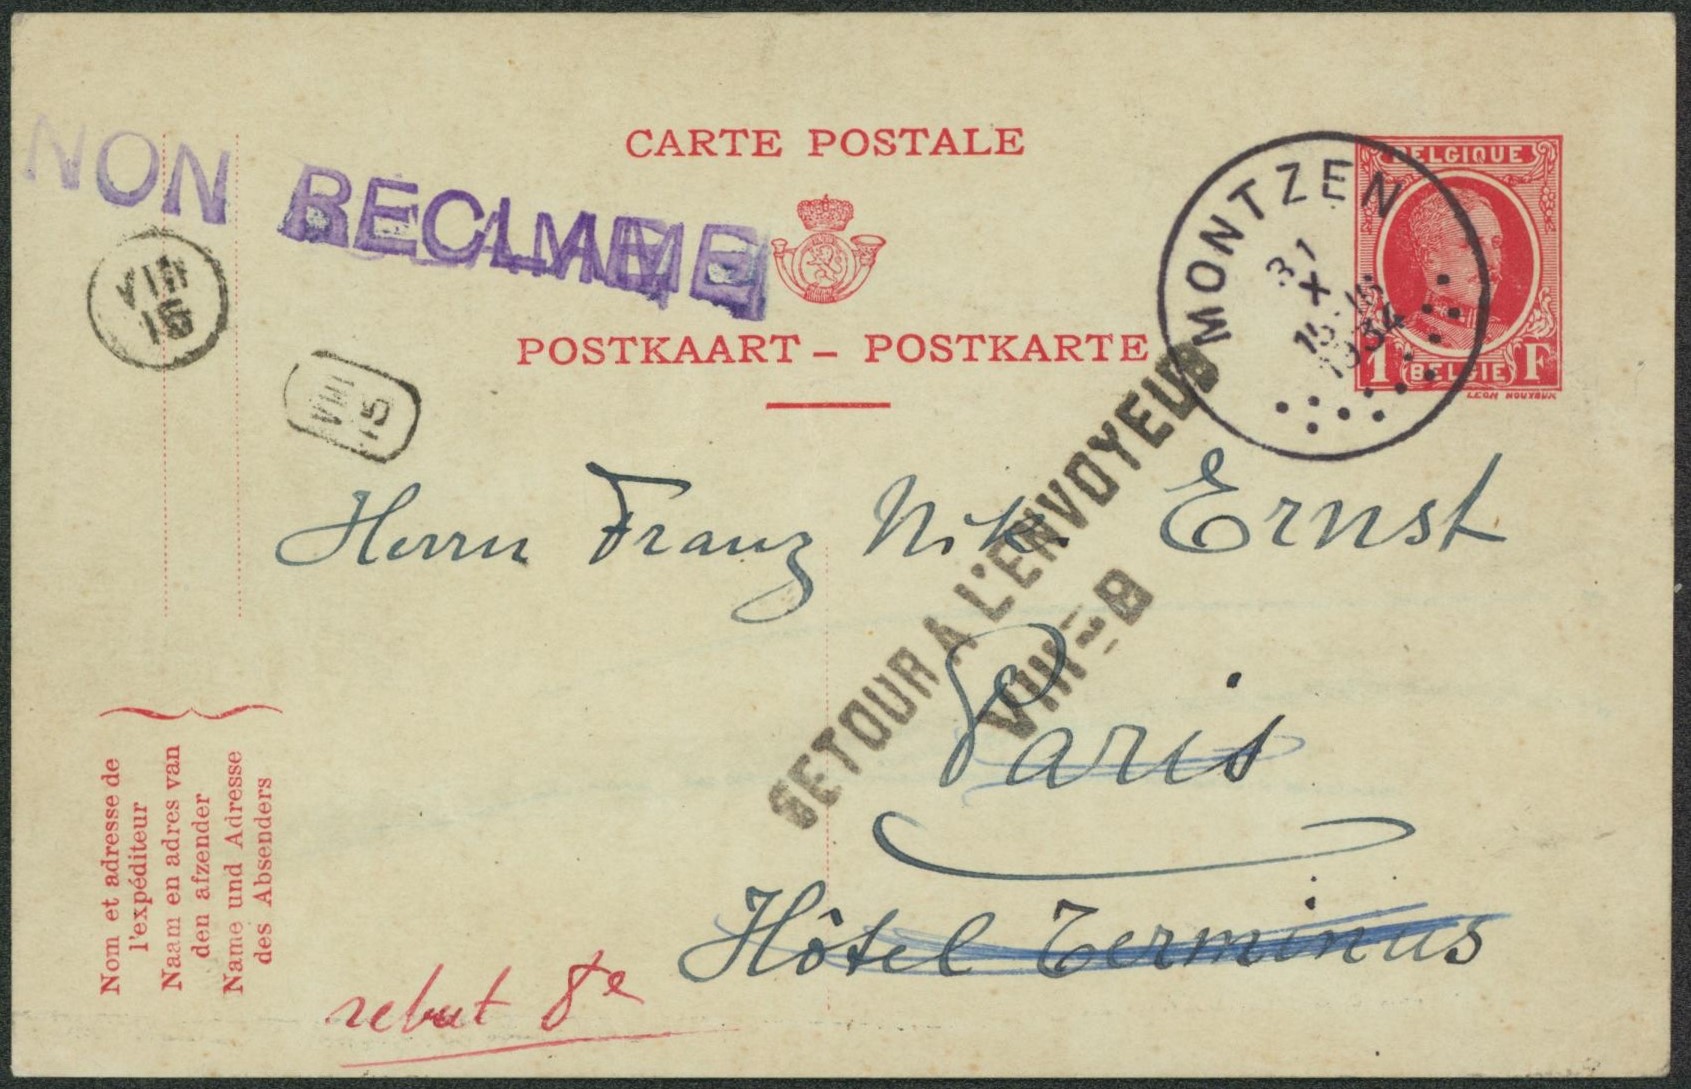 CARTE POSTALE
POSTKAART – POSTKARTE
NON RECLAME
BELGIQUE
1 BELGIE F
MONTZEN
31
X
1934
VIII
15
VIII
15
RETOUR A L'ENVOYEUR
VIII
Herrn Franz Nik Ernst
Paris
Hôtel Terminus
rebut 8e
Nom et adresse de
l'expéditeur
Naam en adres van
den afzender
Name und Adresse
des Absenders